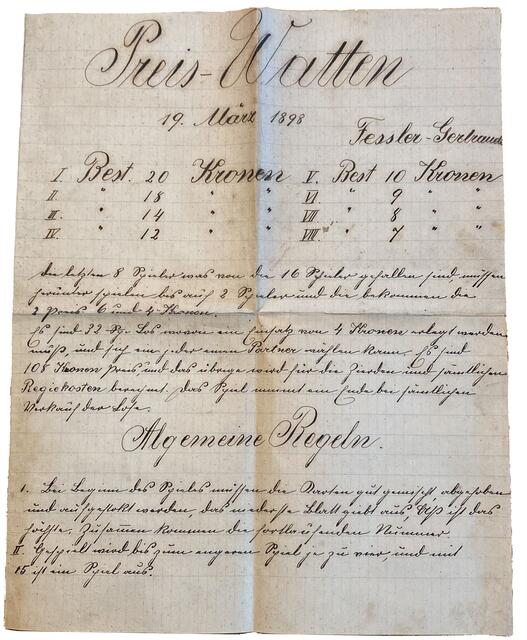 Preis-Watten
19. März 1898
Fessler-Gertraud
I Best. 20 Kronen V. Best 10 Kronen
II. " 18 " " VI. " 9 " "
III. " 14 " " VII " 8 " "
IV. " 12 " " VIII. " 7 " "
Die letzten 8 Spieler was von die 16 Spieler gefallen sind müssen
herunter spielen bis auf 2 Spieler und die bekommen die
2 Preis 6 und 4 Kronen.
Es sind 22 Los wovon ein Einsatz von 4 Kronen erlegt werden
muß, und sich ein jeder einen Partner wählen kann. Es sind
108 Kronen Preis und das übrige wird für die Zierden und sämtlichen
Regiekosten berechnet. Das Spiel nimmt ein Ende bei sämtlichen
Verkauf der Lose.
Algemeine Regeln.
1. Bei Beginn des Spieles müssen die Karten gut gemischt, abgehoben
und aufgestokt werden, das niederste Blatt giebt aus ist das
höchste. Zusamen kommen die fortlaufenden Nummer.
II Gespielt wird bis zum engeren Spiel je zu vier, und mit
15 ist ein Spiel aus.